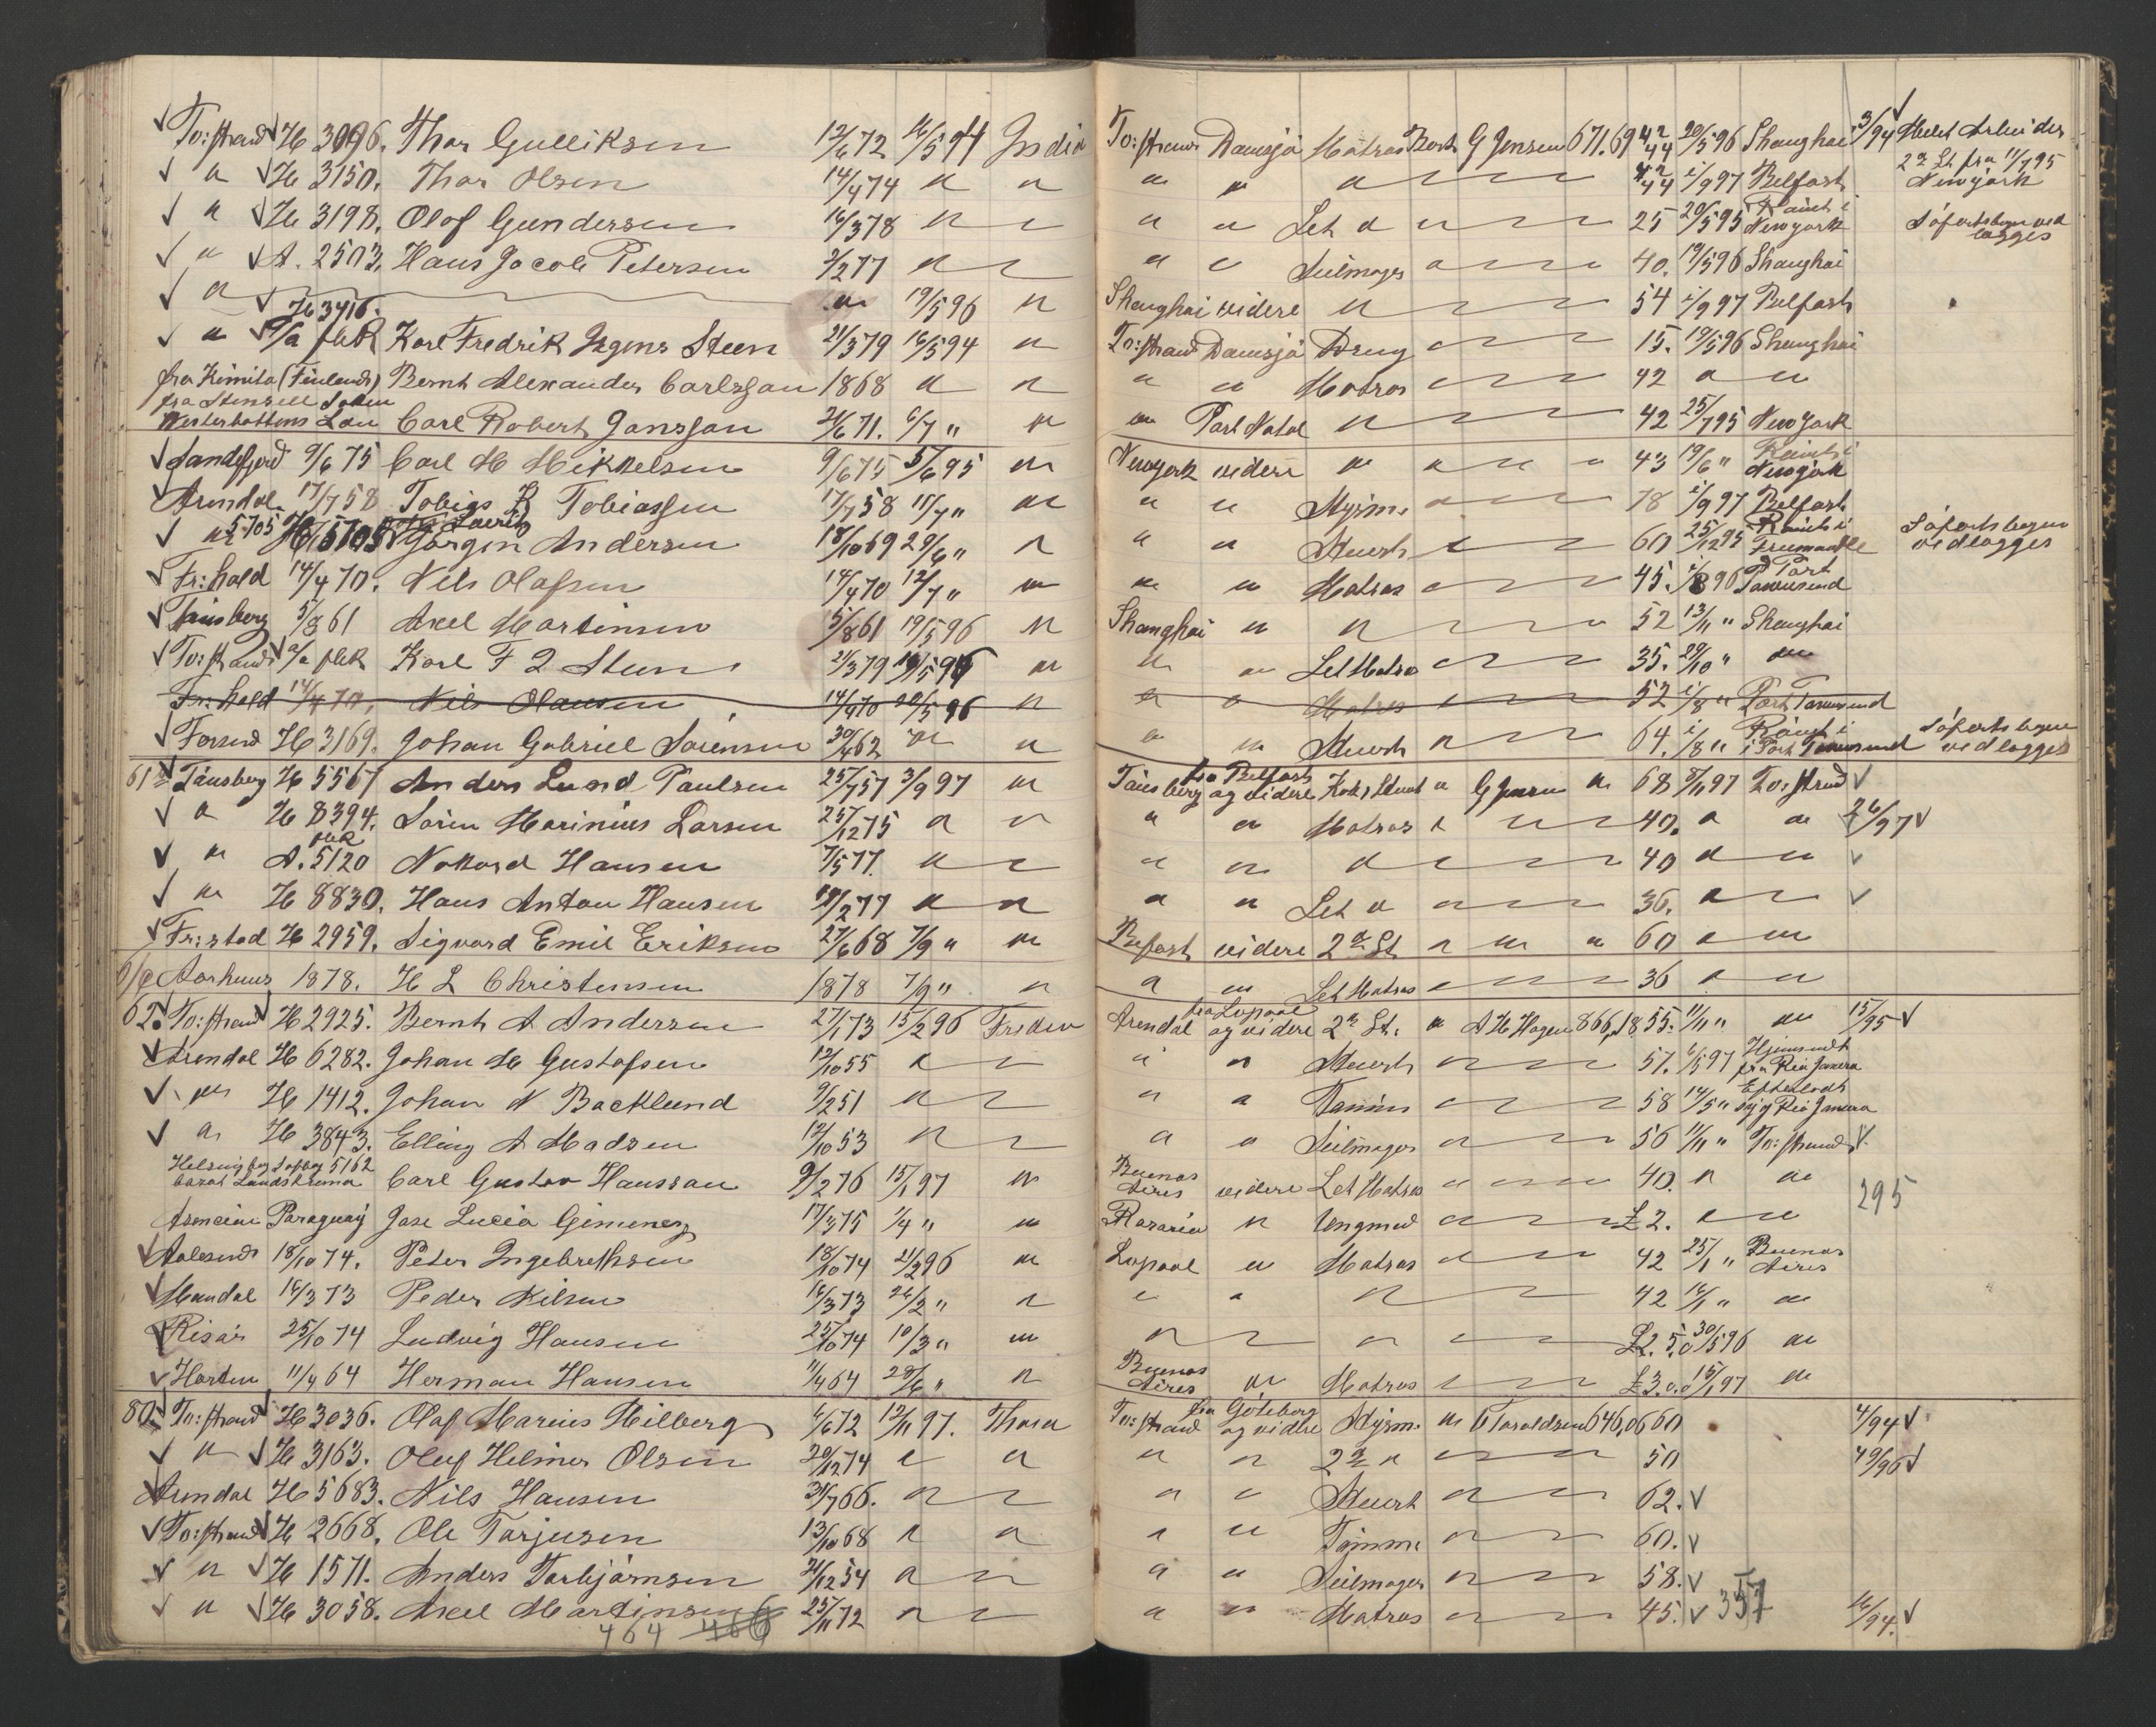 To:strand H 3096. Thor Gulliksen 12/6 72 16/5 94 India To:strand Damsjö Matros Bark G Jensen 671.69 42 44 20/5 96 Shanghai 3/94 Helst Arbeider
" H 3150. Thor Olsen 14/4 74 " " " " " 42 44 1/9 97 Belfast 2n St. fra 11/7 95 Newyork
" H 3198. Olof Gundersen 16/3 78 " " " Let " " 25 20/5 95 Rømt i Newyork Söfartsbogen vedlægges
" A. 2503. Hans Jacob Petersen 2/2 77 " " " Seilmager " 40. 19/5 96 Shanghai
" H 3416. " 19/5 96 " Shanghai videre " 54 1/9 97 Belfast
" a/a flek Karl Fredrik Steen 21/3 79 16/5 94 " To:strand Damsjö Dreng " 15. 19/5 96 Shanghai
fra Kimito (Finland) Bernt Alexander Carlsson 1868 " " " " Matros " 42 " "
fra Stensele Socken
Westerbottens Län Carl Robert Jansson 24/6 71. 6/7 " " " Port Natal " 42 25/7 95 New York
Sandefjord 9/6 75 Carl M Mikkelsen 9/6 75 5/6 95 " Newyork videre " " " " 43 19/6 " Rømt i Newyork
Arendal 17/7 58 Tobias Tobiassen 17/7 58 11/7 " " " " Styrm. " 78 1/9 97 Belfast
" 5705 Jörgen Laurits Andersen 18/10 69 29/6 " " " " Stuert " 60 25/12 95 Rømt i Freemantle Söfartsbogen vedlægges
Fr:hald 14/4 70. Nils Olafsen 14/4 70 12/7 " " " " Matros " 45. 1/8 96 Port Townsend
Tönsberg 5/8 61 Axel Martinsen 5/8 61 19/5 96 " Shanghai " " 52 13/11 " Shanghai
To:strand a/a flek Karl F Steen 21/3 79 19/5 96 " " " Let Matros " 35. 29/10 " "
Fr:hald 14/4 70. Nils Olausen 14/4 70 20/5 96 " " " Matros " 52 1/8 " Port Townsend
Farsund H 3169. Johan Gabriel Sörensen 30/4 62 " " " " Stuert " 64. 1/8 " Rømt i i Port Townsend Söfartsbogen vedlægges
61 Tönsberg H 5567 Anders Lund Paulsen 25/7 57 3/9 97 " Tönsberg fra Belfast og videre Kok & Stuert " G Jensen " 68 8/11 97 To:strand
" H 8394. Sörin Marinius Larsen 25/12 75 " " " " Matros " " 40. " " 26/97
" A. 5120 flek Nokard Hansen 7/5 77. " " " " " 40 " "
" H 8830. Hans Anton Hansen 19/2 77 " " " " Let " " 36. " "
Fr:stad H 2959. Sigvard Emil Eriksen 27/6 68 7/9 " " Belfast videre 2n St " " " 60 " "
Aarhuus 1878. H L Christensen 1878 7/9 " " " " Let Matros " 36 " "
62. To:strand H 2925. Bernt A Andersen 27/1 73 15/2 96 Fredev Arendal fra Lupool og videre 2n St. " A H Hagen 866,18. 55. 11/11 " " 15/95
Arendal H 6282. Johan M Gustafsen 12/10 55 " " " " Stuert " 57. 6/5 97 Hjemsendt fra Rio Janero
" H 1412. Johan N Backlund 9/2 51 " " " " Tømm " 58 14/5 " Efterladt syg Rio Janero
" H 3843. Elling A Madsen 12/10 53 " " " " Seilmager " 56 11/11 " To:strand
Helsingborg Söfbog 5162
Carl Gustav Hanssan 9/2 76 15/1 97 " Buenos Aires videre Let Matros " 40. " " 295
Asencion Paraguay Jose Lucia Gimenez 17/3 75 1/4 " " Rosario " Ungmd " £ 2. " "
Aalesund 18/10 74. Peter Ingebrethsen 18/10 74 21/2 96 " Lupool " Matros " 42 25/1 " Buenos Aires
Mandal 16/3 73 Peder Nilsen 16/3 73 26/2 " " " " " 42 16/1 " "
Risör 25/10 74 Ludvig Hansen 25/10 74 10/3 " " " " " £2. 5.0 30/5 96 "
Horten 11/4 64 Herman Hansen 11/4 64 28/6 " " Buenos Aires " Matros " £3.0.0 15/1 97 "
80. To:strand H 3036. Olaf Marius Milberg 6/6 72 12/11 97. Thora To:strand fra Göteborg og videre Styrm. " O Taraldsen 646,06 60 4/94
" H 3163. Oluf Helmer Olsen 20/12 74 " " " " 2n " " 50 49/96
Arendal H 5683. Nils Hansen 31/7 66. " " " " Stuert " 62.
To:strand H 2668. Ole Tarjusen 13/10 68 " " " " Tømm. " 60.
" H 1571. Anders Torbjörnsen 21/12 54 " " " " Seilmager " 58.
" H 3058. Axel Martinsen 25/11 72 " " " " Matros " 45. 357 16/94.
464 466